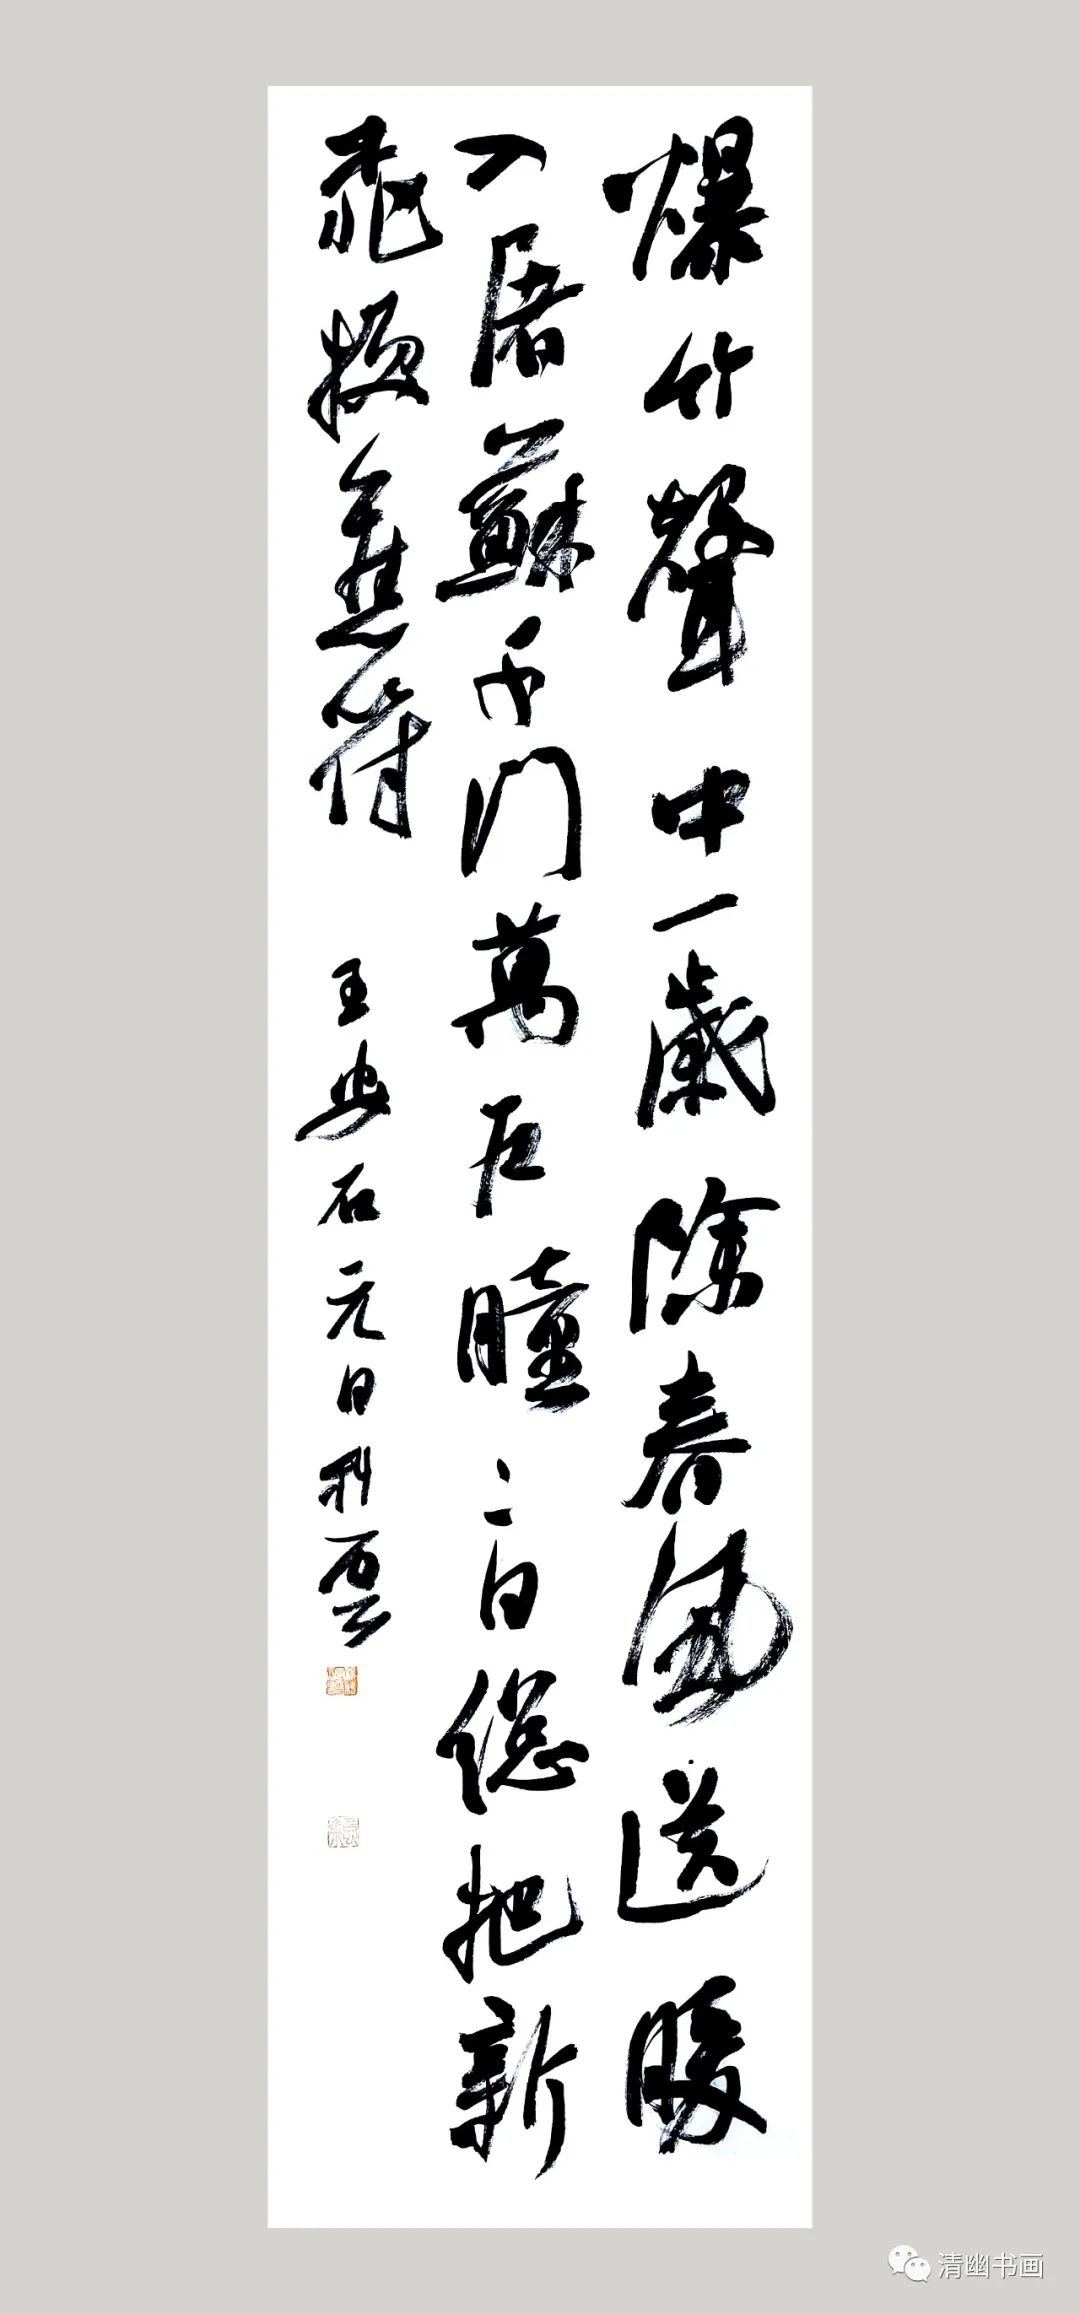 爆竹聲中一歲除春風送暖
入屠蘇千門萬戶曈〻日總把新
桃換舊符 王安石元日 雲
清幽书画